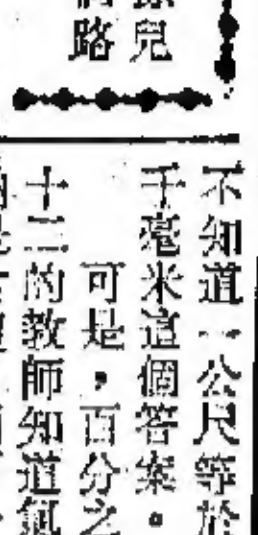 兒
路
不知道一公尺等於
千毫米這個答案。
可是，百分之
十三的教師知道氣